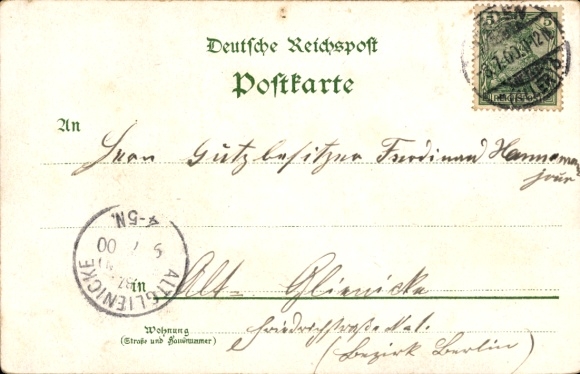 Deutsche Reichspost
Postkarte
An
Herrn Gutzbesitzer Ferdinand Hannemann
in Alt-Glienicke
Wohnung
(Straße und Hausnummer)
Friedrichstraße
(Bezirk Berlin)
ALTGLIENICKE
5 7 00
4-5N.
5